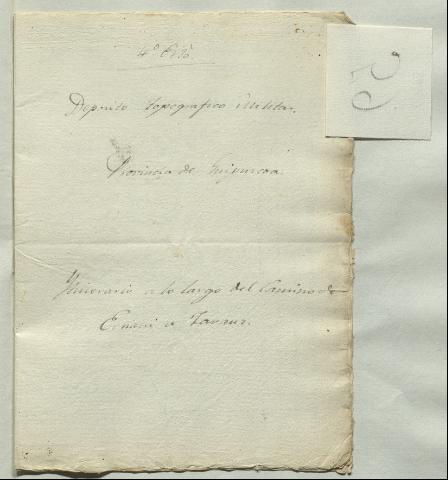 4º
Deposito topografico Militar.
Provincia de Guipuzcoa.
Ytinerario a lo largo del Camino de
Ernani a Zarauz.